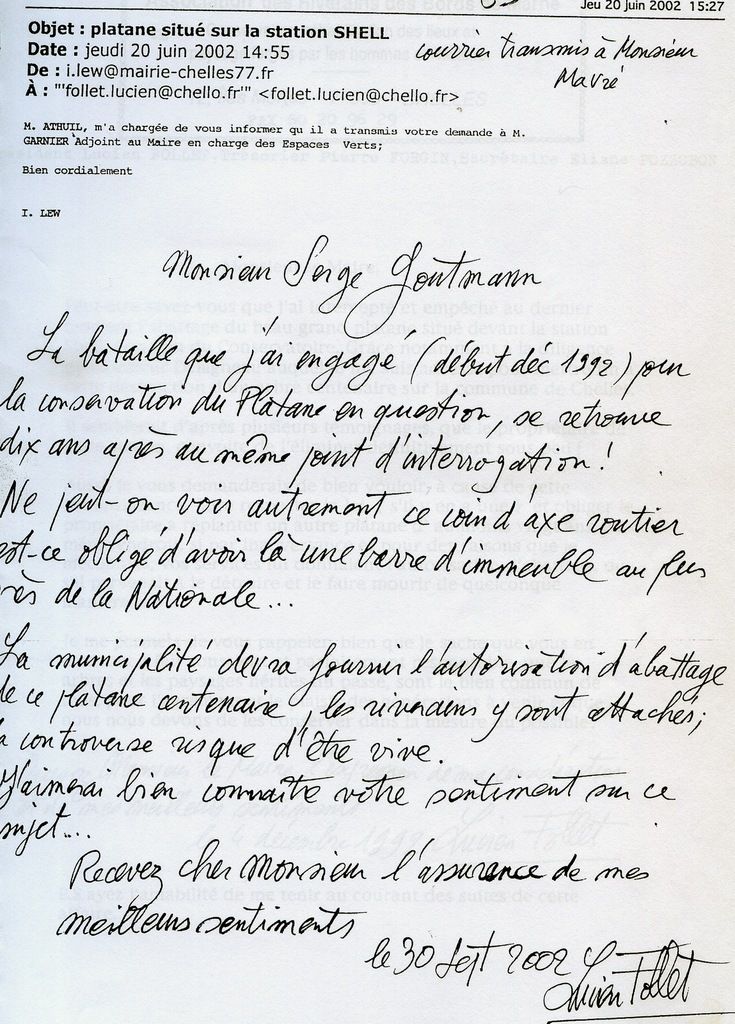 Jeu 20 juin 2002 15:27
Objet : platane situé sur la station SHELL
Date : jeudi 20 juin 2002 14:55
De : i.lew@mairie-chelles77.fr
À : "'follet.lucien@chello.fr'" <follet.lucien@chello.fr>
courrier transmis à Monsieur
Mavré
M. ATHUIL, m'a chargée de vous informer qu il a transmis votre demande à M.
GARNIER Adjoint au Maire en charge des Espaces Verts;
Bien cordialement
I. LEW
Monsieur Serge Goutmann
La bataille que j'ai engagé (début déc 1992) pour
la conservation du Platane en question, se retrouve
dix ans apres au même point d'interrogation !
Ne peut-on voir autrement ce coin d axe routier
est-ce obligé d'avoir là une barre d'immeuble au plus
rès de la Nationale...
La municipalité devra fournir l'autorisation d'abattage
de ce platane centenaire, les riverains y sont attachés;
la controverse risque d'être vive.
J'aimerai bien connaître vôtre sentiment sur ce
sujet...
Recevez cher Monsieur l'assurance de mes
meilleurs sentiments
le 30 Sept 2002 Lucien Follet